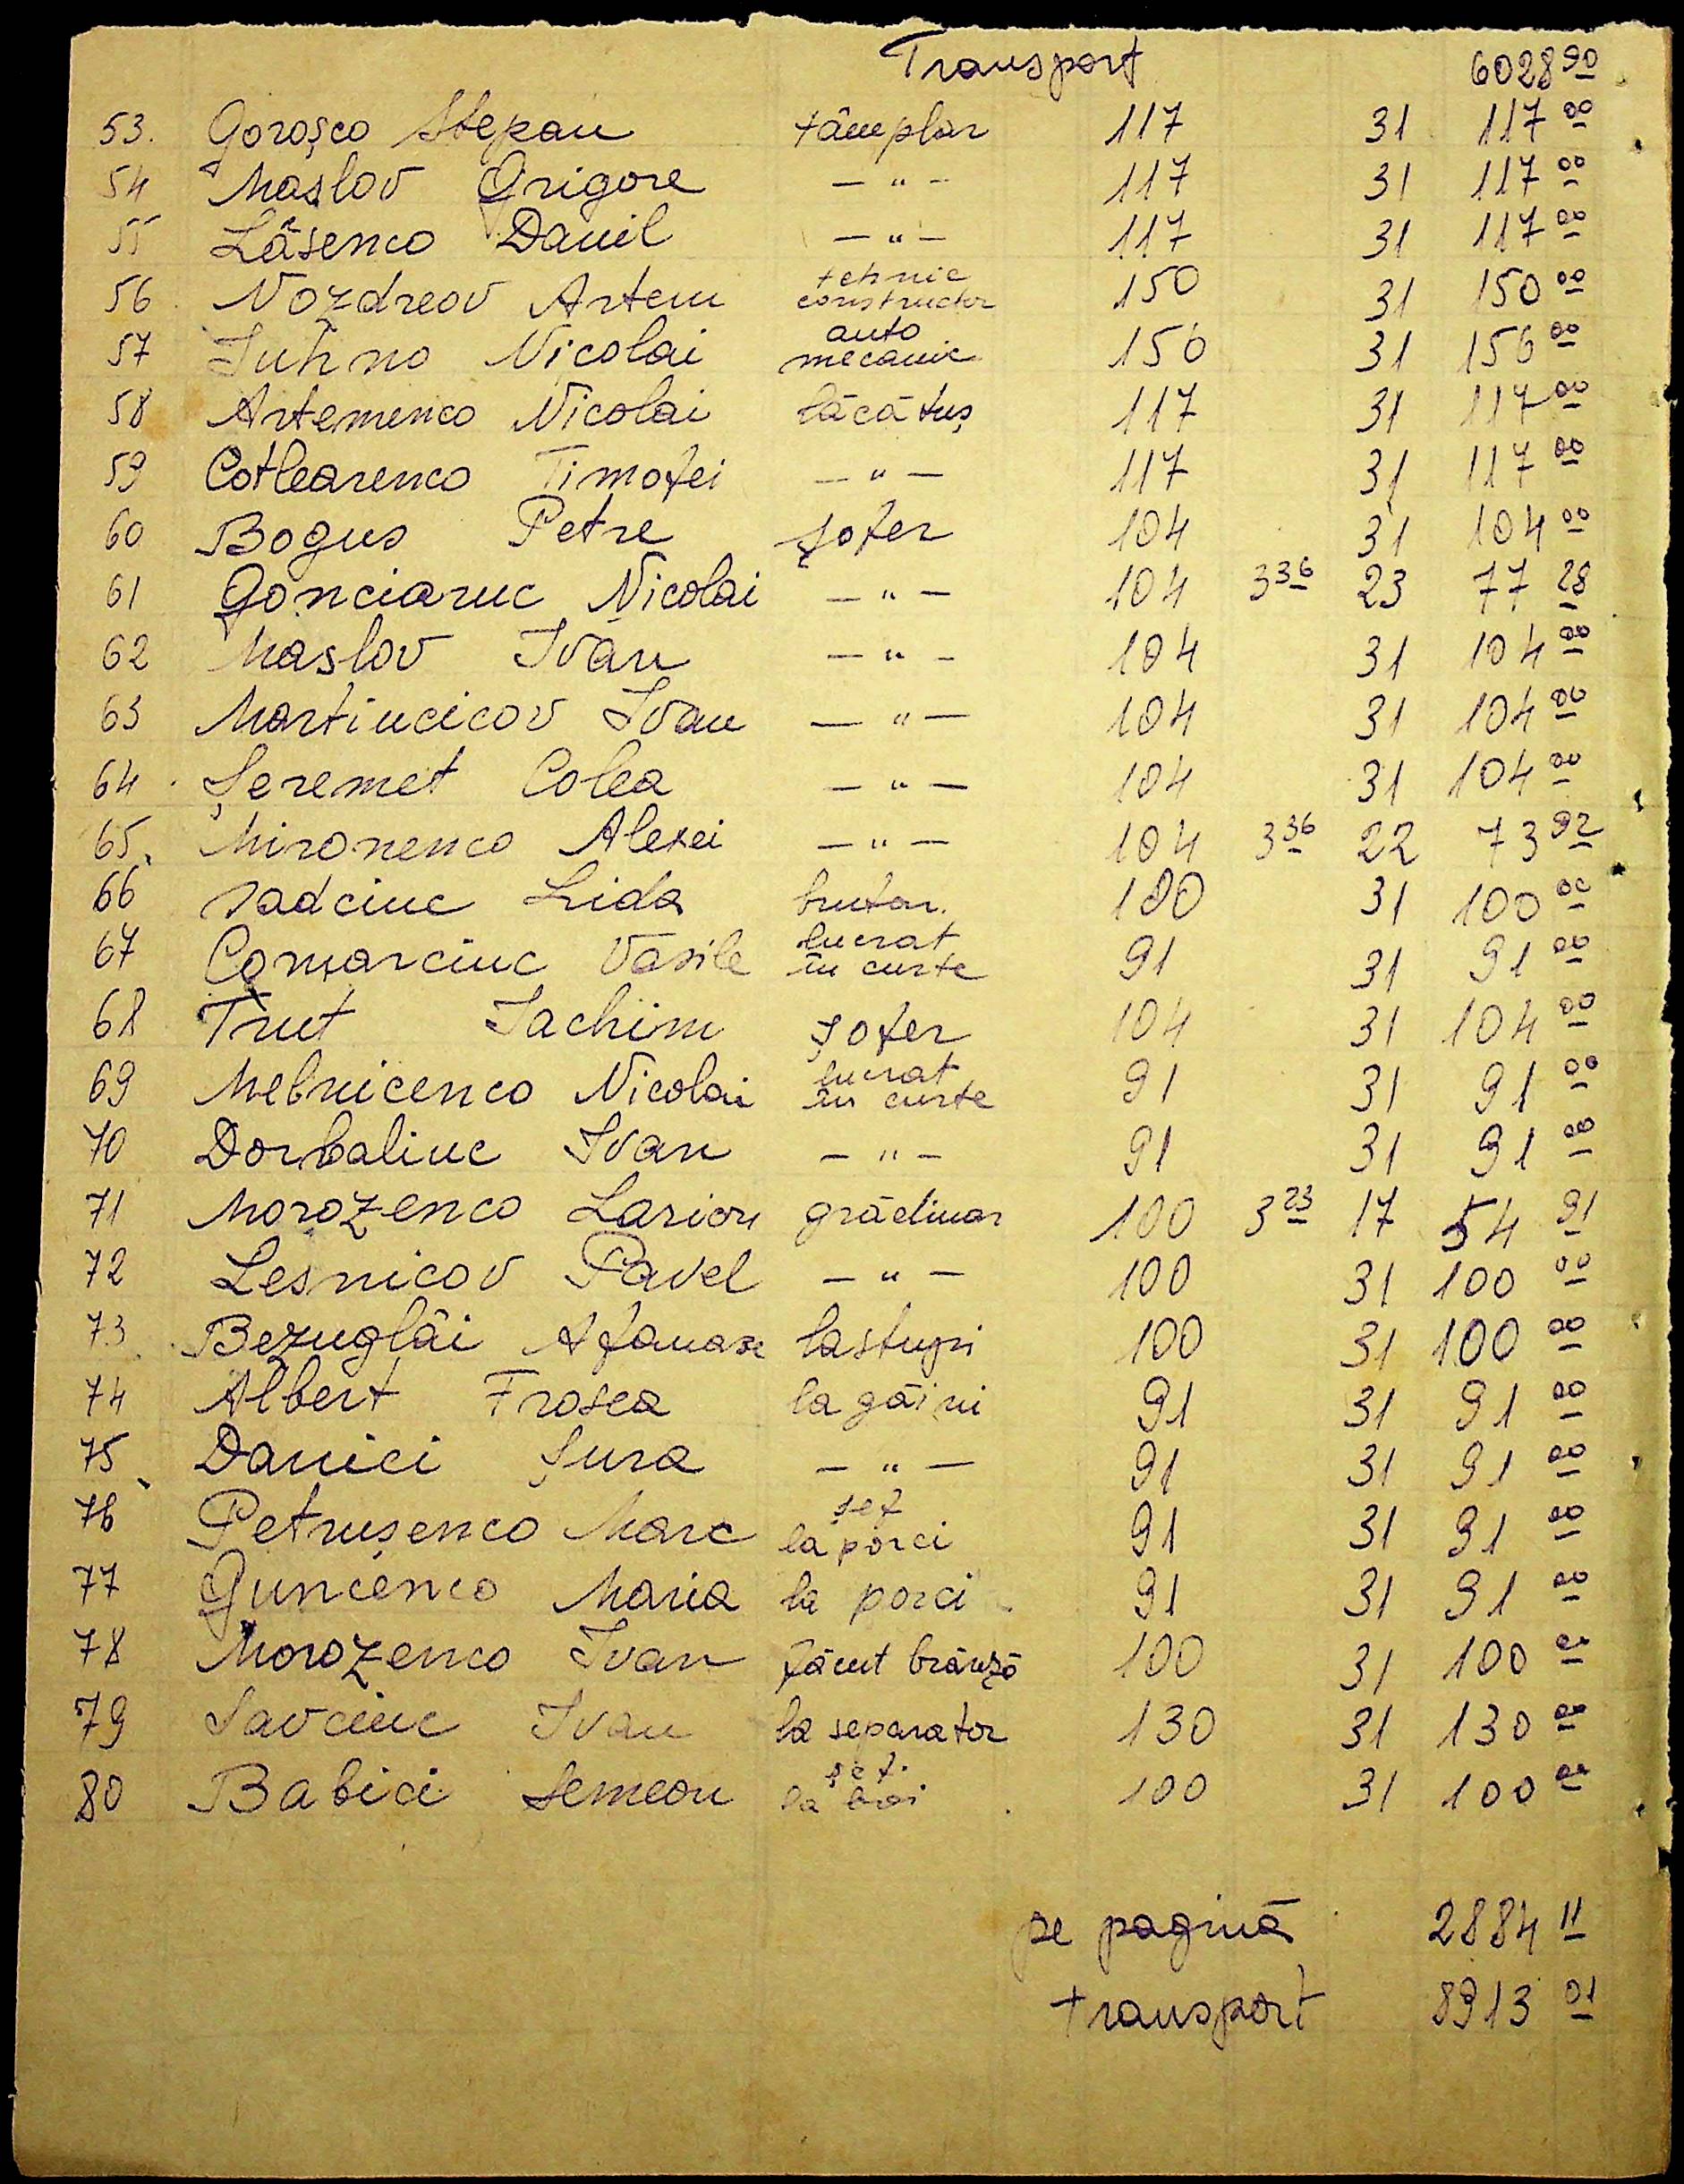 Transport 6028 90
53. Goroșco Stepan tâmplar 117 31 117 00
54 Maslov Grigore — " — 117 31 117 00
55 Lâsenco Danil — " — 117 31 117 00
56 Nozdreov Artem tehnic constructor 150 31 150 00
57 Iuhno Nicolai auto mecanic 156 31 156 00
58 Artemenco Nicolai lăcătuș 117 31 117 00
59 Cotlearenco Timofei — " — 117 31 117 00
60 Bogus Petre șofer 104 31 104 00
61 Gonciaruc Nicolai — " — 104 3 36 23 77 28
62 Maslov Ivan — " — 104 31 104 00
63 Martincicov Ivan — " — 104 31 104 00
64 Șeremet Colea — " — 104 31 104 00
65. Mironenco Alexei — " — 104 3 36 22 73 92
66 Sadciuc Lida brutar. 100 31 100 00
67 Comarciuc Vasile lucrat în curte 91 31 91 00
68 Trut Iachim șofer 104 31 104 00
69 Melnicenco Nicolai lucrat în curte 91 31 91 00
70 Dorbaliuc Ivan — " — 91 31 91 00
71 Morozenco Larion grădinar 100 3 23 17 54 91
72 Lesnicov Pavel — " — 100 31 100 00
73 Bezuglâi Afanase la stupi 100 31 100 00
74 Albert Frosea la găini 91 31 91 00
75 Danici Șura — " — 91 31 91 00
76 Petrușenco Marc șef la porci 91 31 91 00
77 Guncenco Maria la porci 91 31 91 00
78 Morozenco Ivan făcut brânză 100 31 100 00
79 Savciuc Ivan la separator 130 31 130 00
80 Babici Semeon șef. la boi 100 31 100 00
pe pagină 2884 11
transport 8913 01